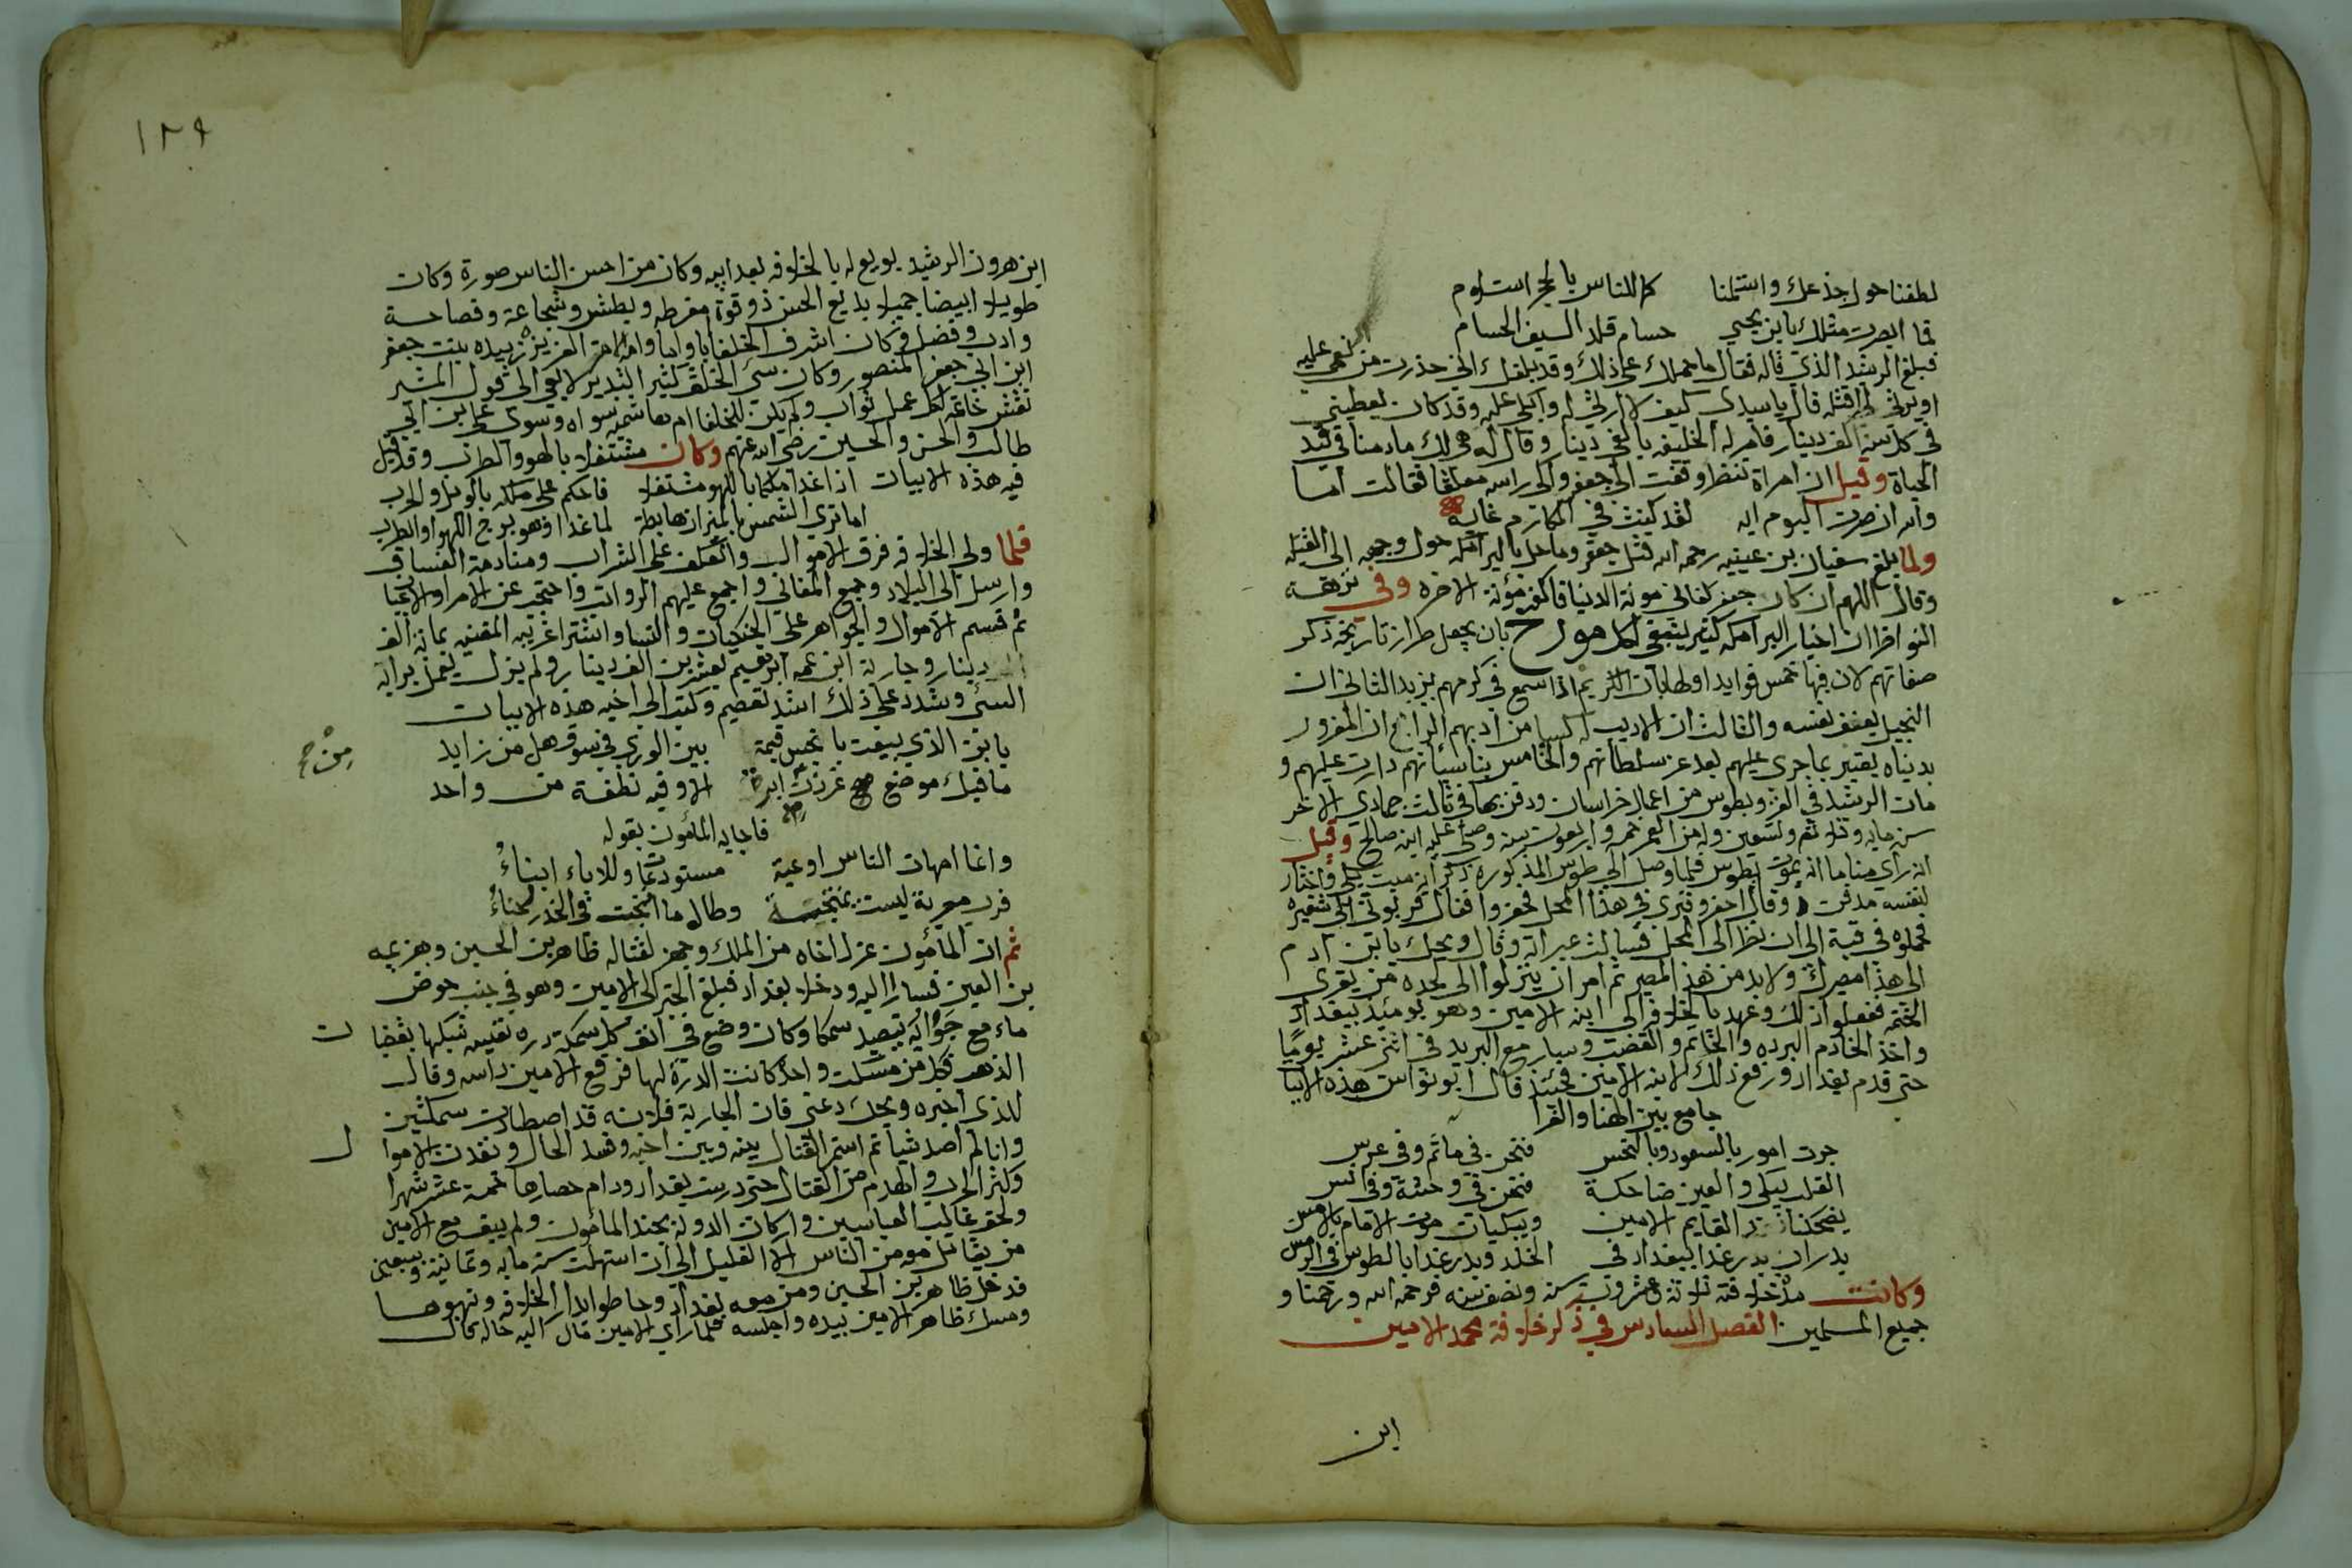 لطفنا حول جذعك واستلمنا كما للناس بالحجر استلام
فما ابصرت مثلك يابن يحيى حسام قلد السيف الحسام
فبلغ الرشيد الذي قاله فقال ما حملك على ذلك وقد بلغك اني حذرت من نعى عليه
او يرثي او قتله قال يا سيدي كيف لا ارثي له وابكي عليه وقد كان يعطيني
في كل سنة الف دينار فامر له الخليفه بالفي دينار وقال له هي لك ما دمنا في قيد
الحياة وقيل ان امراة وقفت الى جعفر والى راسه معلقا فقالت اما
والله ان صرت اليوم ايه لقد كنت في المكارم غايه
ولما بلغ سفيان بن عيينه رحمه الله قتل جعفر وما حل بالبرامكه حول وجهه الى القبله
وقال اللهم ان كان جعفر كفاني مونة الدنيا فاكفه مؤنة الاخره وفي نزهة
النواظر ان اخبار البرامكه كثير ينبغي لكل مورخ بان يجعل طراز تاريخه ذكر
صفاتهم لان فيها خمس فوايد اولها بان الكريم اذا سمع في كرمهم يزيد الثاني ان
البخيل يعنف نفسه والثالث ان الاديب له كسبا من ادبهم الرابع ان المغرور
بدنياه يعتبر بما جرى عليهم بعد عز سلطانهم والخامس دارت عليهم و
مات الرشيد في الغزو بطوس من اعمال خراسان ودفن بها في ثالث جمادي الاخر
سنة مايه وثلاثة وتسعين وله من العمر خمسه واربعون سنه وصلى عليه ابنه صالح وقيل
انه راي مناما انه يموت بطوس فلما وصل الى طوس المذكوره ذكر انه ميت بكى واختار
لنفسه مدفن وقال احفروا قبري في هذا المحل فحفروا فقال قربوني الى شفيره
فحملوه في قبة الى ان نظر الى المحل فسالت عبراته وقال ويحك يا ابن ادم
الى هذا مصيرك ولا بد من هذا المصير ثم امر ان ينزلوا الى لحده من يقرى
الختمه ففعلوا ذلك وعهد بالخلافه الى ابنه الامين وهو يومئذ ببغداد
واخذ الخادم البرده والخاتم والقضيب وسار مع البريد في اثني عشر يوما
حتى قدم بغداد ورفع ذلك لابنه الامين فحينئذ قال ابو نواس هذه الابيا
جامع بين الهنا والعزا
جرت امور بالسعود وبالنحس فنحن في ماتم وفي عرس
القلب يبكي والعين ضاحكة فنحن في وحشة وفي انس
يضحكنا القايم الامين ويبكينا موت الامام بالامس
بدران بدر غدا ببغداد في الخلد وبدر غدا بالطوس في الرمس
وكانت مدة خلافته ثلاثة وعشرون سنة ونصف سنه فرحمه الله ورحمنا و
جميع المسلمين الفصل السادس في ذكر خلافة محمد الامين
ابن
١٢٩
ابن هرون الرشيد بويع له بالخلافه بعد ابيه وكان من احسن الناس صورة وكان
طويلا ابيضا جميلا بديع الحسن ذو قوة مفرطه وبطش وشجاعة وفصاحة
وادب وفضل وكان اشرف الخلفا ابا واما وامه الامة العزيزه زبيده بنت جعفر
ابن ابي جعفر المنصور وكان سئ الخلق كثير التبذير لا يعي الى قول المشير
نقش خاتمه لكل عمل ثواب ولم يكن للخلفا ام هاشميه سواه وسوى علي بن ابي
طالب والحسن والحسين رضي الله عنهم وكان مشتغلا باللهو والطرب وقد قيل
فيه هذه الابيات اذا غدا ملكا باللهو مشتغلا فاحكم على ملكه بالويل والحرب
اما ترى الشمس بالميزان هابطة لما غدا وهو برج اللهو والطرب
فلما ولي الخلافه فرق الاموال واعتكف على الشراب ومنادمة الفساق
وارسل الى البلاد وجمع المغاني واجمع عليهم الرواتب واحتجب عن الامرا والاعيا
ثم قسم الاموال والجواهر على الخنكيات والنسا واشترا غريبه المغنيه بمائة الف
دينار وجارية ابن عمه ابرهيم بعشرين الف دينار ولم يزل يعمل برايه
السئ وشدد على ذلك اشد تعصيم وكتب الى اخيه هذه الابيات
يا ابن الذي بيعت بابخس قيمة بين الورى في سوق هل من زايد
ما فيك موضع غرزت ابرة الا وفيه نطفة من واحد
فاجابه المأمون بقوله
وانما امهات الناس اوعية مستودعات وللاباء ابناء
فرب معربة ليست بمنجبة وطال ما انجبت في الخدر لخناء
ثم ان المأمون عزل اخاه من الملك وجهز لقتاله طاهر بن الحسين وهزيمه
بن العين فسارا اليه ودخلا بغداد فبلغ الخبر الى الامين وهو في جنب حوض
ماء مع جواريه يتصيد سمكا وكان وضع في انف كل سمكة دره نفيسه شبكها بقضبا
الذهب فكل من مسكت واحدة كانت الدرة لها فرفع الامين راسه وقال
للذي اخبره ويحك دعني فان الجارية فلانه قد اصطادت سمكتين
وانا لم اصد شيا ثم استمر القتال بينه وبين اخيه وفسد الحال ونفدت الاموا
ل
وكثر الحرب والهدم من القتال حتى درست بغداد ودام حصارها خمسة عشر شهرا
ولحق غالب العباسيين واركان الدولة بجند المأمون ولم يبق مع الامين
من يقاتل معه من الناس الا القليل الى ان استهلت سنة مايه وثمانية وتسعين
فدخل طاهر بن الحسين ومن معه بغداد وحاطوا بدار الخلافه ونهبوها
ومسك طاهر الامين بيده واجلسه فلما راي الامين قال اليه خاله بحال